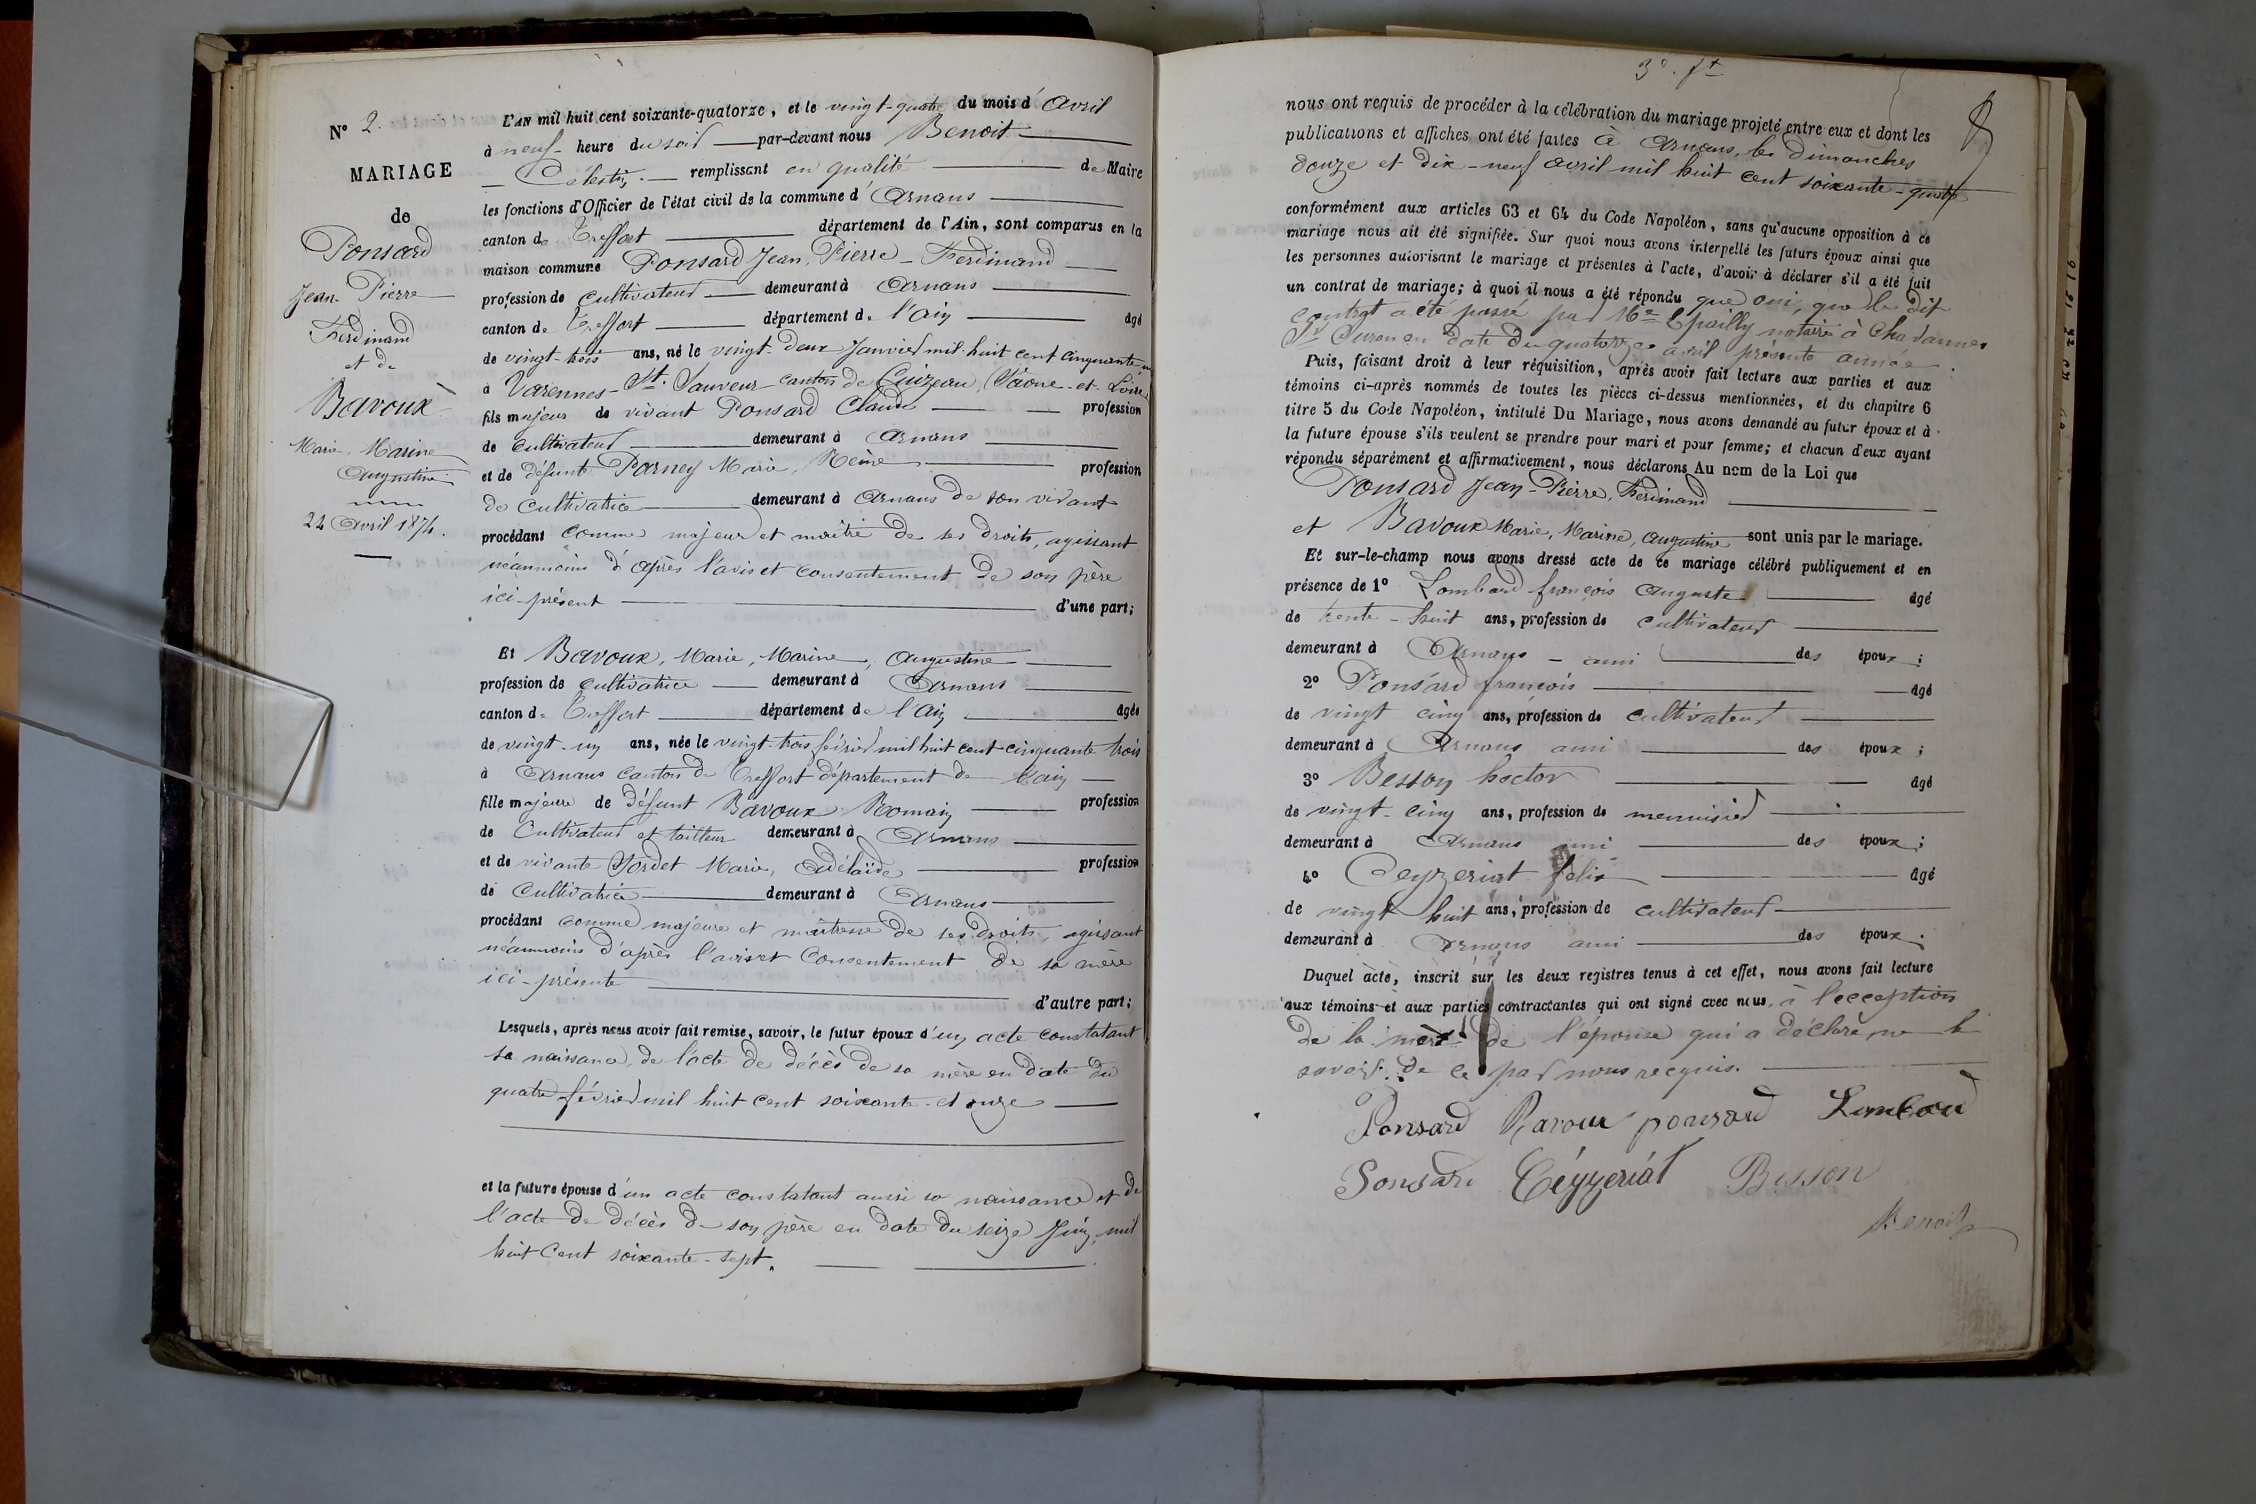 N° 2.
MARIAGE
de
Ponsard
Jean Pierre
Ferdinand
et de
Bavoux
Marie, Marine
Augustine
24 Avril 1874.
L'AN mil huit cent soixante-quatorze, et le vingt-quatre du mois d'Avril
à neuf heure du soir par-devant nous Benoit
Célestin remplissant en qualité de Maire
les fonctions d'Officier de l'état civil de la commune d'Arnans
canton de Treffort département de l'Ain, sont comparus en la
maison commune Ponsard Jean, Pierre - Ferdinand
profession de cultivateur demeurant à Arnans
canton de Treffort département de l'Ain âgé
de vingt-trois ans, né le vingt-deux Janvier mil huit cent cinquante un
à Varennes-St. Sauveur canton de Cuizeau (Saône-et-Loire
fils majeur de vivant Ponsard Claude profession
de cultivateur demeurant à Arnans
et de défunte Parney Marie, Reine profession
de cultivatrice demeurant à Arnans de son vivant
procédant comme majeur et maître de ses droits, agissant
néanmoins d'après l'avis et consentement de son père
ici-présent d'une part;
Et Bavoux, Marie, Marine, Augustine
profession de cultivatrice demeurant à Arnans
canton de Treffort département de l'Ain âgée
de vingt-un ans, née le vingt-trois février mil huit cent cinquante trois
à Arnans canton de Treffort département de l'ain
fille majeure de défunt Bavoux Romain profession
de Cultivateur et tailleur demeurant à Arnans
et de vivante Jordet Marie, Adélaïde profession
de Cultivatrice demeurant à Arnans
procédant comme majeure et maîtresse de ses droits agissant
néanmoins d'après l'avis et consentement de sa mère
ici-présente d'autre part;
Lesquels, après nous avoir fait remise, savoir, le futur époux d'un acte constatant
sa naissance, de l'acte de décès de sa mère en date du
quatre février mil huit cent soixante-et onze
et la future épouse d'un acte constatant aussi sa naissance et de
l'acte de décès de son père en date du seize Juin mil
huit cent soixante-sept.
3e. ft
nous ont requis de procéder à la célébration du mariage projeté entre eux et dont les
publications et affiches ont été faites à Arnans, les Dimanches
douze et dix-neuf avril mil huit cent soixante-quatorze
conformément aux articles 63 et 64 du Code Napoléon, sans qu'aucune opposition à ce
mariage nous ait été signifiée. Sur quoi nous avons interpellé les futurs époux ainsi que
les personnes autorisant le mariage et présentes à l'acte, d'avoir à déclarer s'il a été fait
un contrat de mariage; à quoi il nous a été répondu que oui, que le dit
contrat a été passé par Me Epailly notaire à Chavannes
sr Suran en date du quatorze avril présente année.
Puis, faisant droit à leur réquisition, après avoir fait lecture aux parties et aux
témoins ci-après nommés de toutes les pièces ci-dessus mentionnées, et du chapitre 6
titre 5 du Code Napoléon, intitulé Du Mariage, nous avons demandé au futur époux et à
la future épouse s'ils veulent se prendre pour mari et pour femme; et chacun d'eux ayant
répondu séparément et affirmativement, nous déclarons Au nom de la Loi que
Ponsard Jean-Pierre, Ferdinand
et Bavoux Marie, Marine, Augustine sont unis par le mariage.
Et sur-le-champ nous avons dressé acte de ce mariage célébré publiquement et en
présence de 1° Lombard françois Auguste âgé
de trente-huit ans, profession de cultivateur
demeurant à Arnans - ami des époux;
2° Ponsard françois âgé
de vingt cinq ans, profession de cultivateur
demeurant à Arnans ami des époux;
3° Besson hector âgé
de vingt-cinq ans, profession de menuisier
demeurant à Arnans ami des époux;
4° Ceyzeriat felix âgé
de vingt huit ans, profession de cultivateur
demeurant à Arnans ami des époux.
Duquel acte, inscrit sur les deux registres tenus à cet effet, nous avons fait lecture
aux témoins et aux parties contractantes qui ont signé avec nous, à l'exception
de la mère de l'épouse qui a déclaré ne le
savoir de ce par nous requis.
Ponsard Bavoux ponsard Lombard
Ponsard Céyzeriat Besson
Benoit